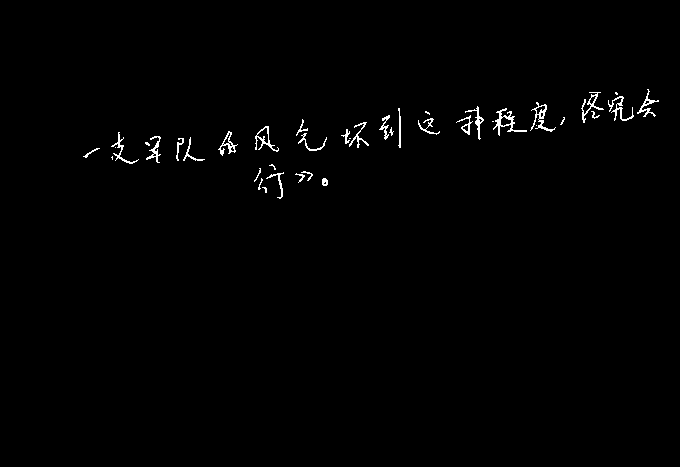 一支军队的风气坏到这种程度,终究会
行》。